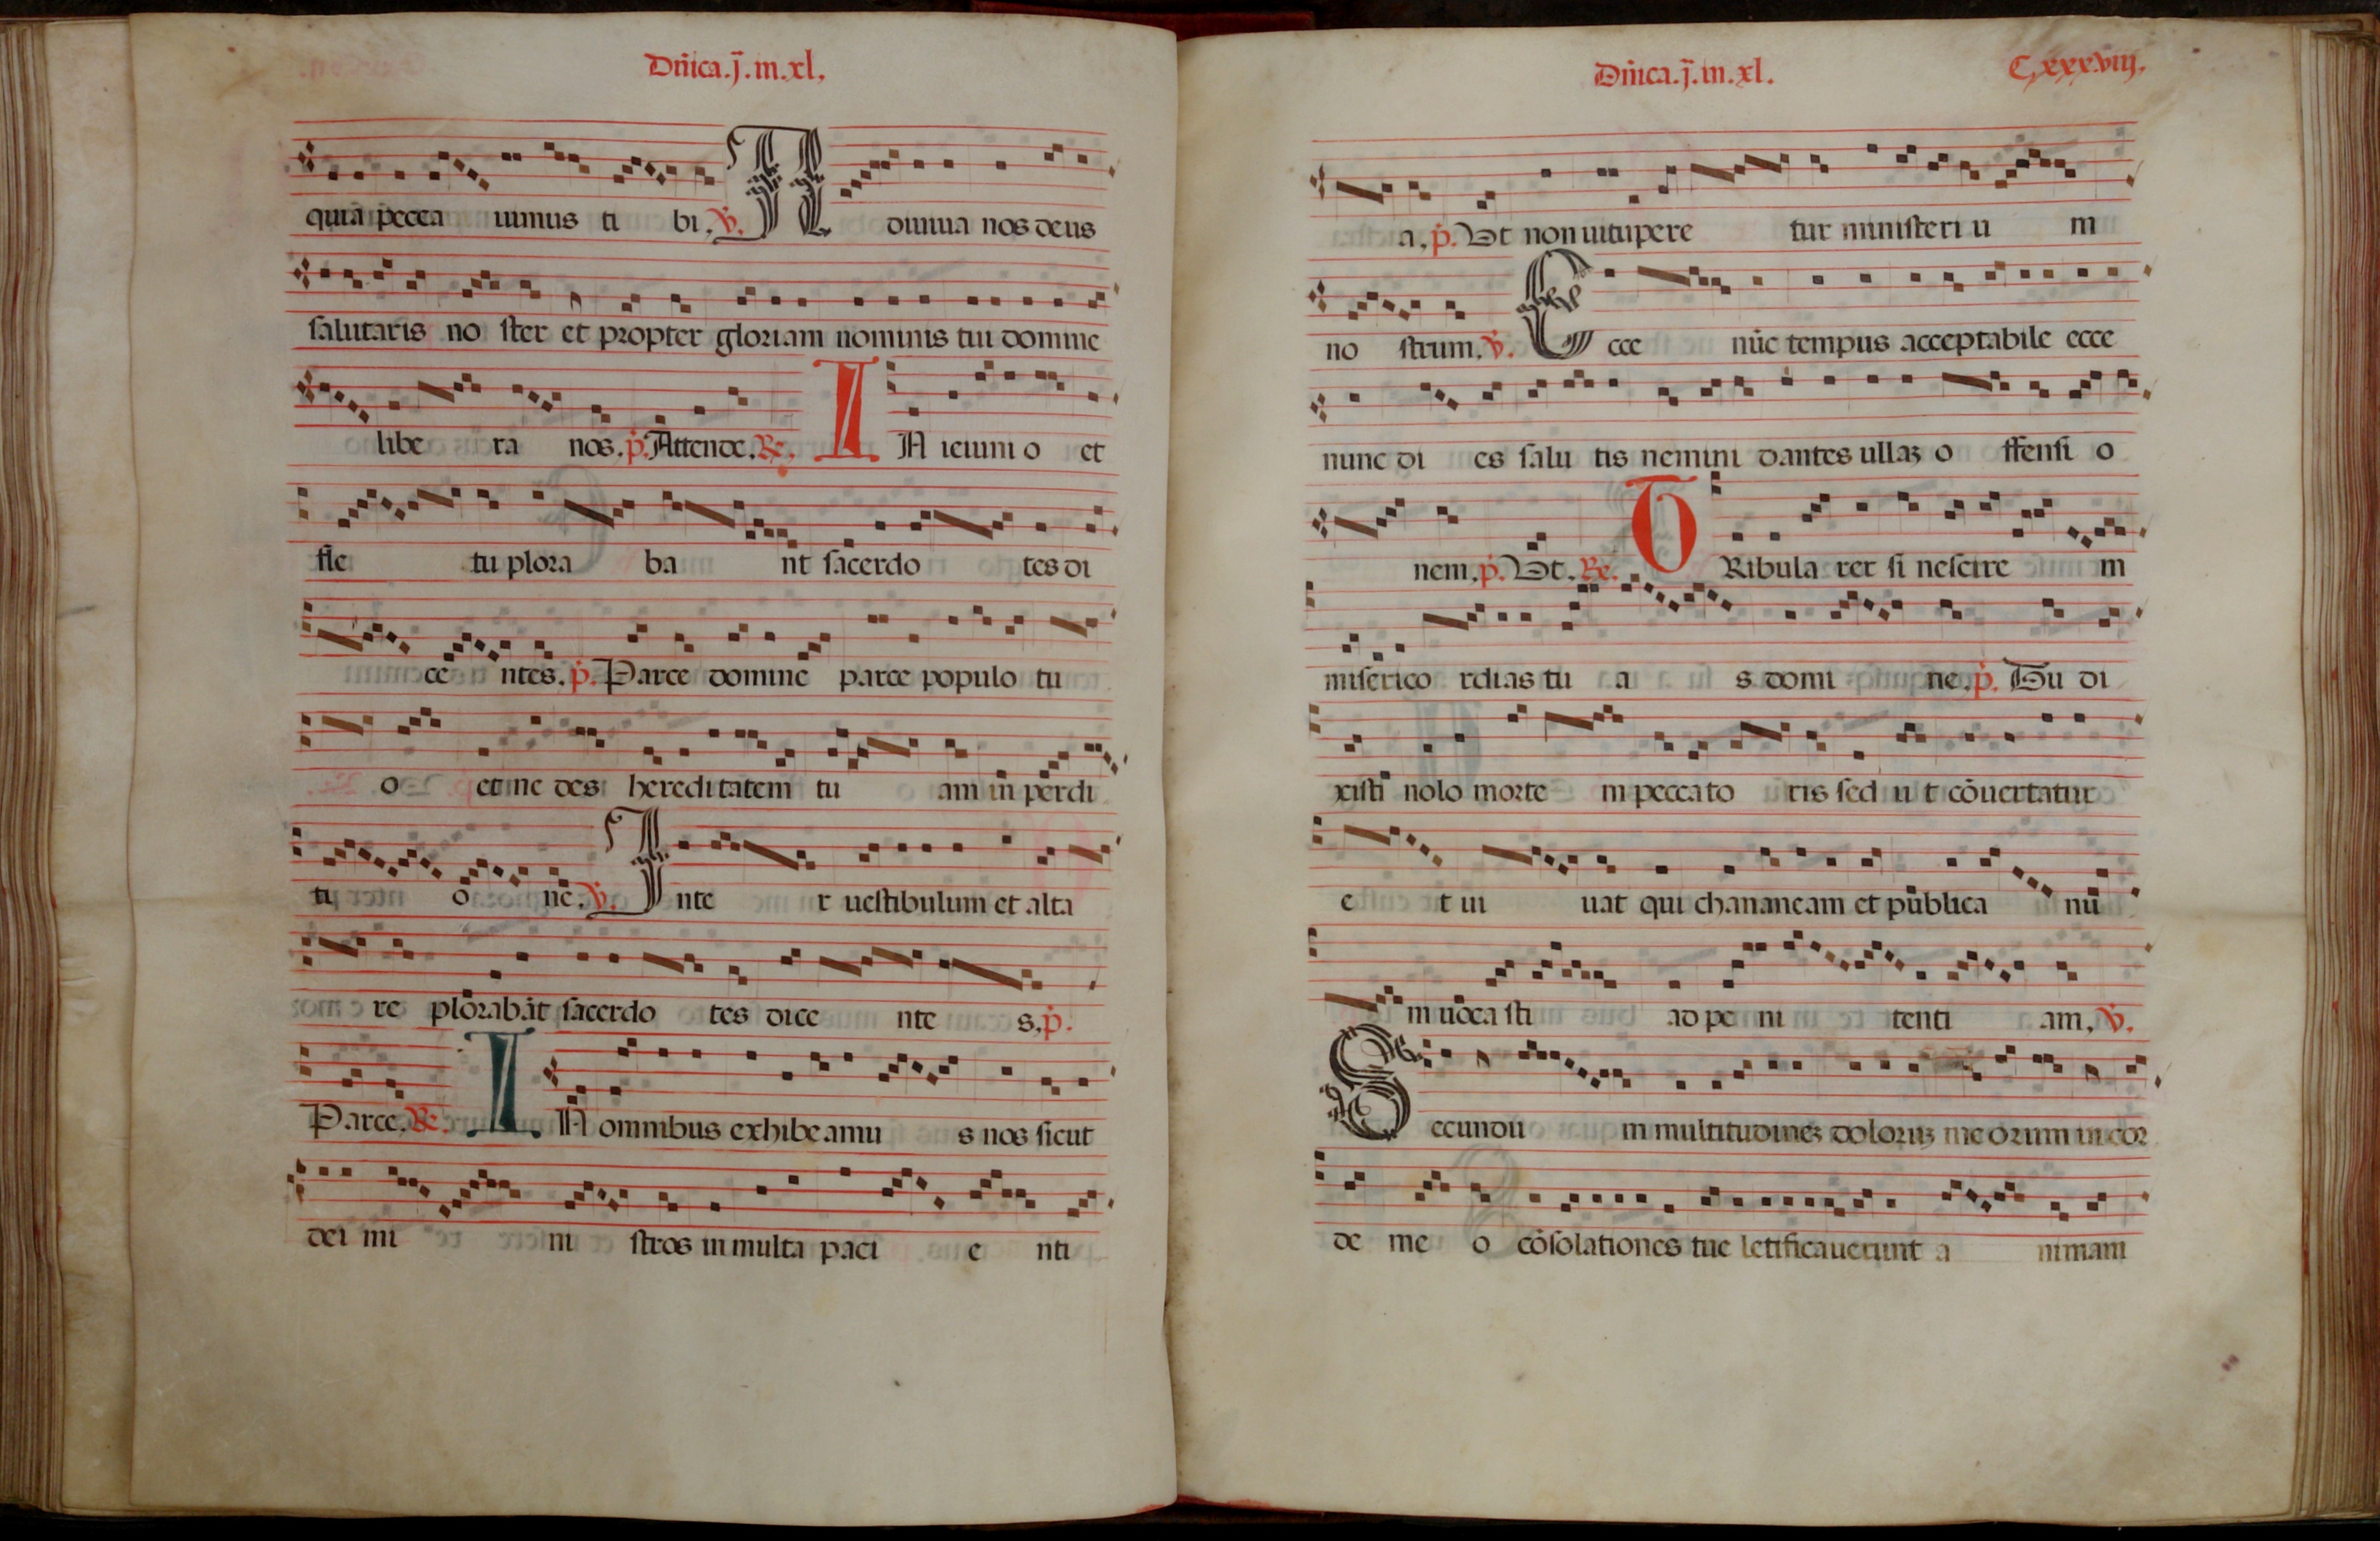 Dn̄ica.j̄.in.xl.
quia pecca uimus ti bi. v̇. A diuiua nos deus
salutaris no ster et propter gloriam nominis tui domine
libe ra nos. ṗ. Attende. Re. I N ieiuni o et
fle tu plora ba nt sacerdo tes di
ce ntes. ṗ. Parce domine parce populo tu
o et ne des heredi tatem tu am in perdi
ti o ne. v̇. I nte r uestibulum et alta
re plorabāt sacerdo tes dice nte s. ṗ.
Parce. Re. I N omnibus exhibe amu s nos sicut
dei mi ni stros in multa paci e nti
Dn̄ica.j̄.in.xl. C.xxx.viij.
a. ṗ. Ut non uitupere tur ministeri u m
no strum. v̇. E cce nūc tempus acceptabile ecce
nunc di es salu tis nemini dantes ullaꝫ o ffensi o
nem. ṗ. Ut. Re. T Ribula rer si nescire m
miserico rdias tu a s domi ne. ṗ. Tu di
xisti nolo morte m peccato ris sed u t cōuertatur
e t ui uat qui chananeam et publica nū
m uoca sti ad pe ni tenti am. v̇.
S ecundu m multitudineꝫ doloruꝫ me orum in cor
de me o cōsolationes tue letificauerunt a nimam